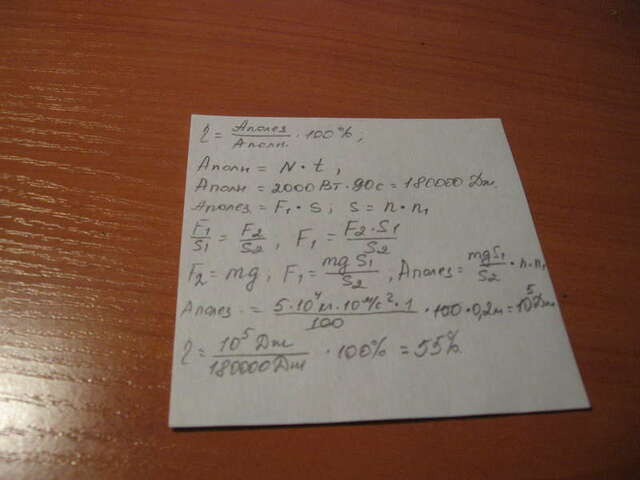 η = Аполез / Аполн. · 100%;
Аполн = N · t,
Аполн = 2000 Вт · 90 с = 180000 Дж.
Аполез = F₁ · s; s = n · n₁
F₁/S₁ = F₂/S₂, F₁ = F₂·S₁/S₂
F₂ = mg; F₁ = mgS₁/S₂, Аполез = mgS₁/S₂ · n · n₁
Аполез = 5·10⁴ · 10 м/с² · 1 / 100 · 100 · 0,2 м = 10⁵ Дж
η = 10⁵ Дж / 180000 Дж · 100% = 55%